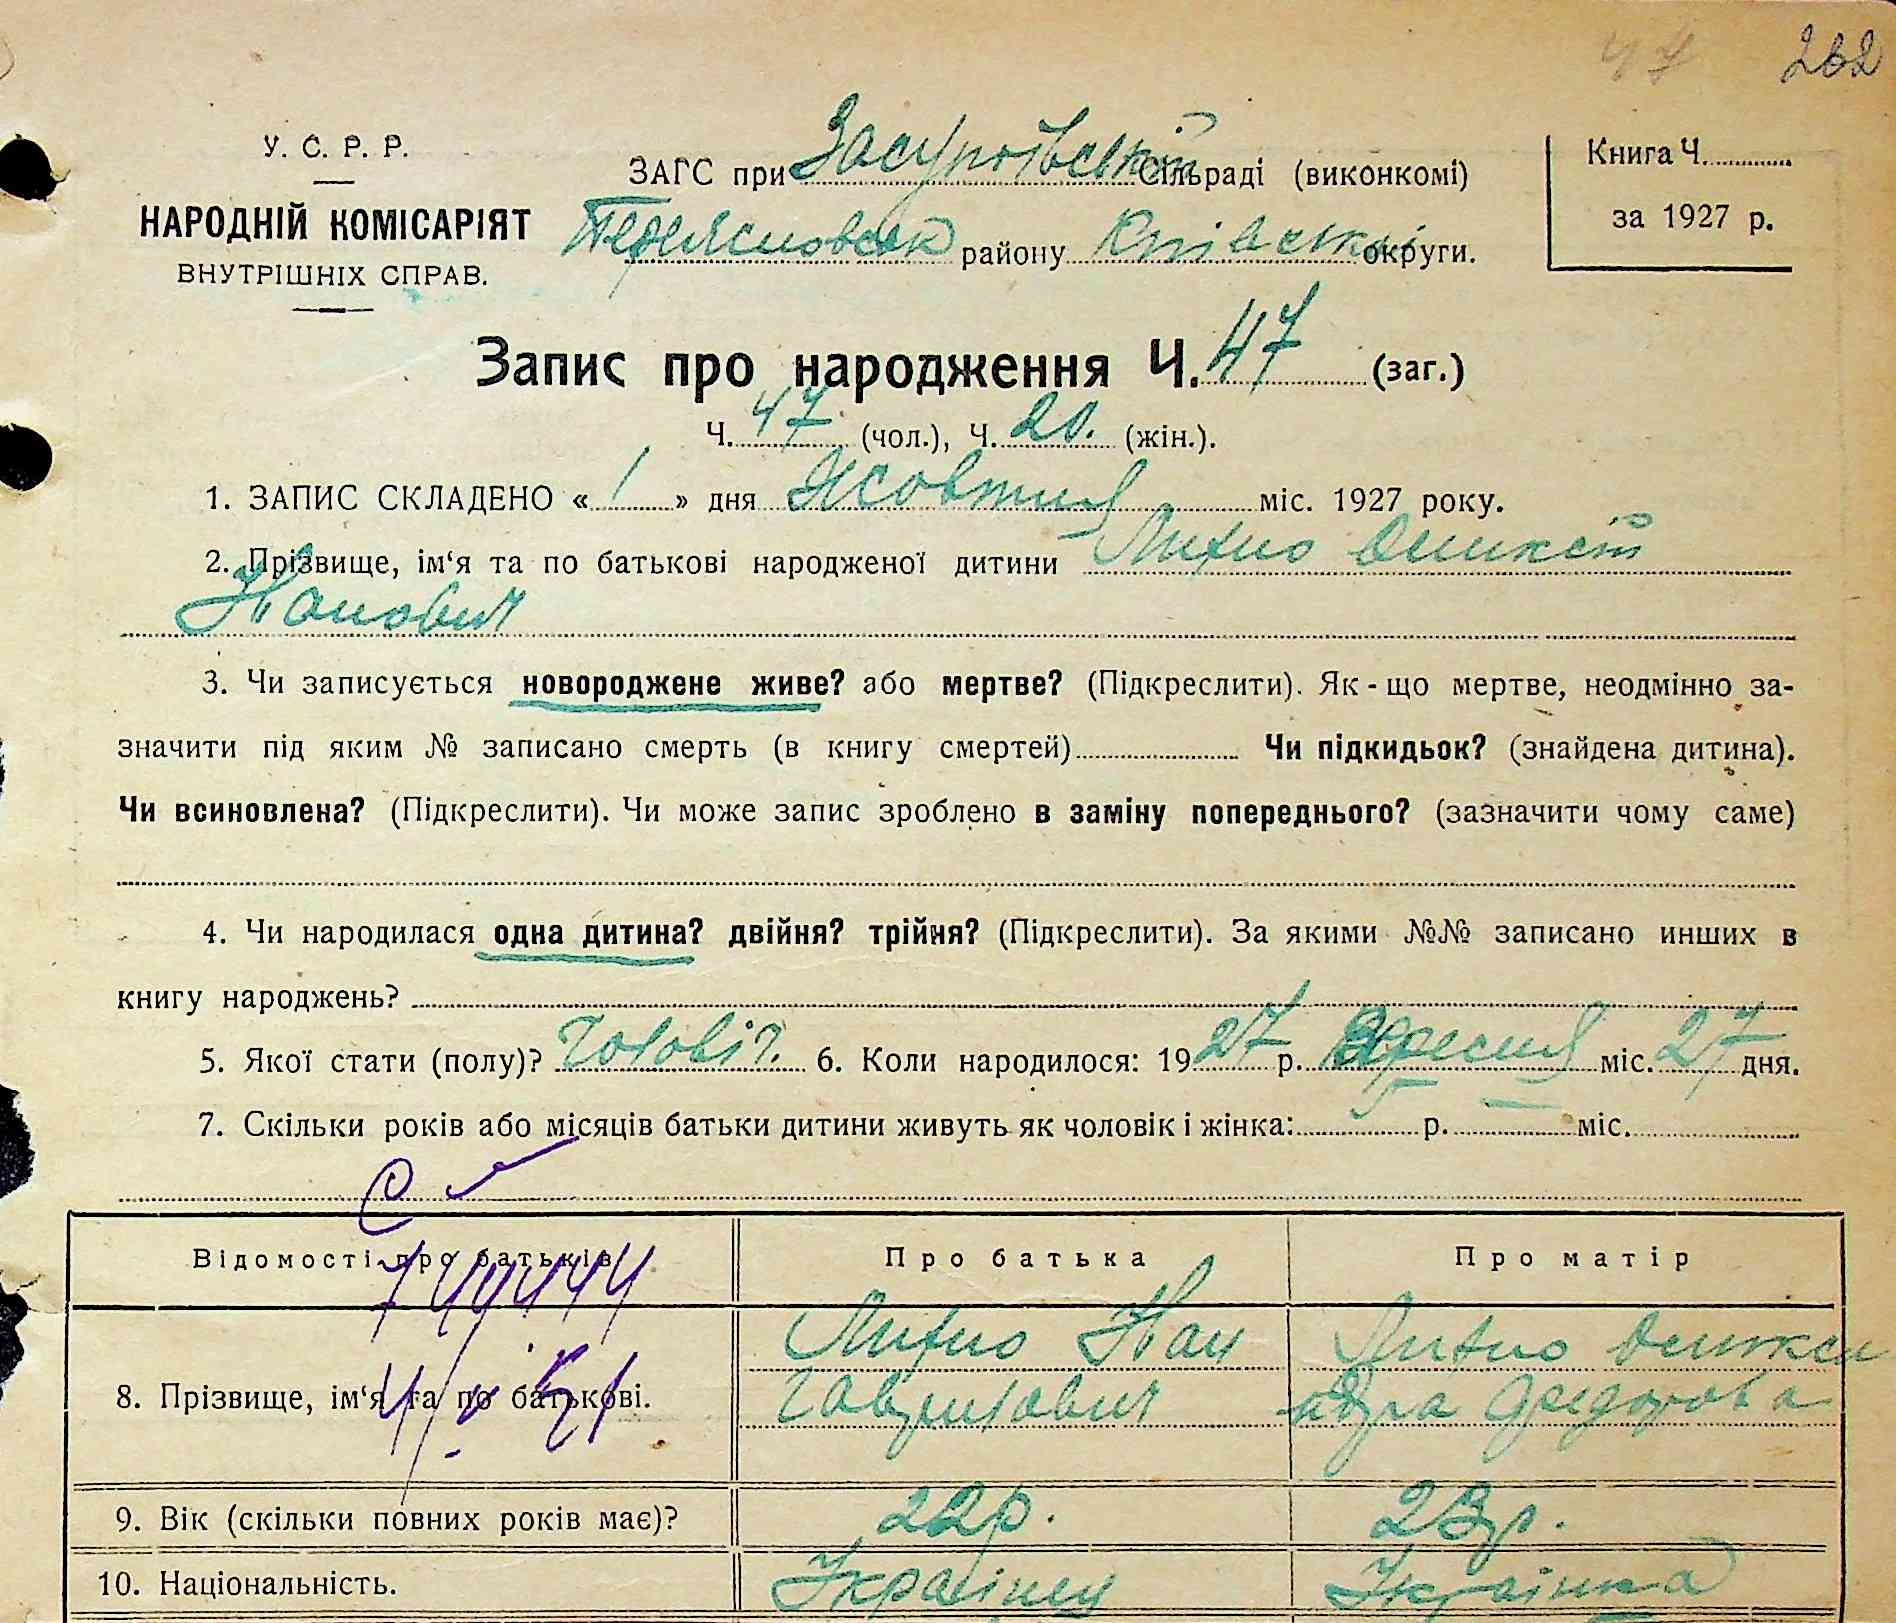 47 262
У. С. Р. Р.
НАРОДНІЙ КОМІСАРІЯТ
ВНУТРІШНІХ СПРАВ.
ЗАГС при Засупоївській Сільраді (виконкомі)
району Київської округи.
Книга Ч.
за 1927 р.
Запис про народження Ч. 47 (заг.)
Ч. 47 (чол.), Ч. 20. (жін.).
1. ЗАПИС СКЛАДЕНО « 1 » дня Жовтня міс. 1927 року.
2. Прізвище, ім‘я та по батькові народженої дитини
3. Чи записується новороджене живе? або мертве? (Підкреслити). Як-що мертве, неодмінно за-
значити під яким № записано смерть (в книгу смертей) Чи підкидьок? (знайдена дитина).
Чи всиновлена? (Підкреслити). Чи може запис зроблено в заміну попереднього? (зазначити чому саме)
4. Чи народилася одна дитина? двійня? трійня? (Підкреслити). За якими №№ записано инших в
книгу народжень?
5. Якої стати (полу)? Чоловіч. 6. Коли народилося: 1927 р. Вересня міс. 27 дня.
7. Скільки років або місяців батьки дитини живуть як чоловік і жінка: р. міс.
Відомості про батьків Про батька Про матір
8. Прізвище, ім‘я та по батькові. Гаврилович Федорова
9. Вік (скільки повних років має)? 22р. 23р.
10. Національність. Українец Українка